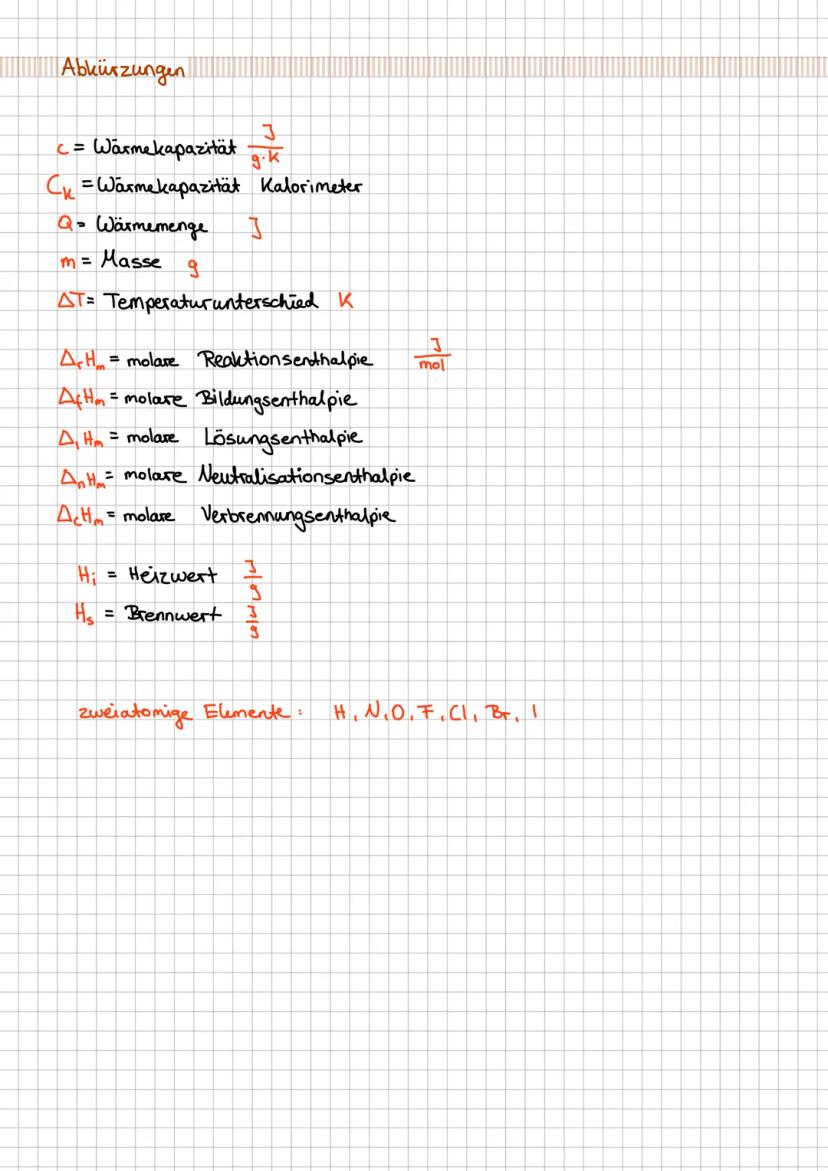 Abkürzungen
c = Wärmekapazität J/g·K
C_K = Wärmekapazität Kalorimeter
Q = Wärmemenge J
m = Masse g
ΔT = Temperaturunterschied K
Δ_rH_m = molare Reaktionsenthalpie J/mol
Δ_fH_m = molare Bildungsenthalpie
Δ_lH_m = molare Lösungsenthalpie
Δ_nH_m = molare Neutralisationsenthalpie
Δ_cH_m = molare Verbrennungsenthalpie
H_i = Heizwert J/g
H_s = Brennwert J/g
zweiatomige Elemente : H, N, O, F, Cl, Br, I